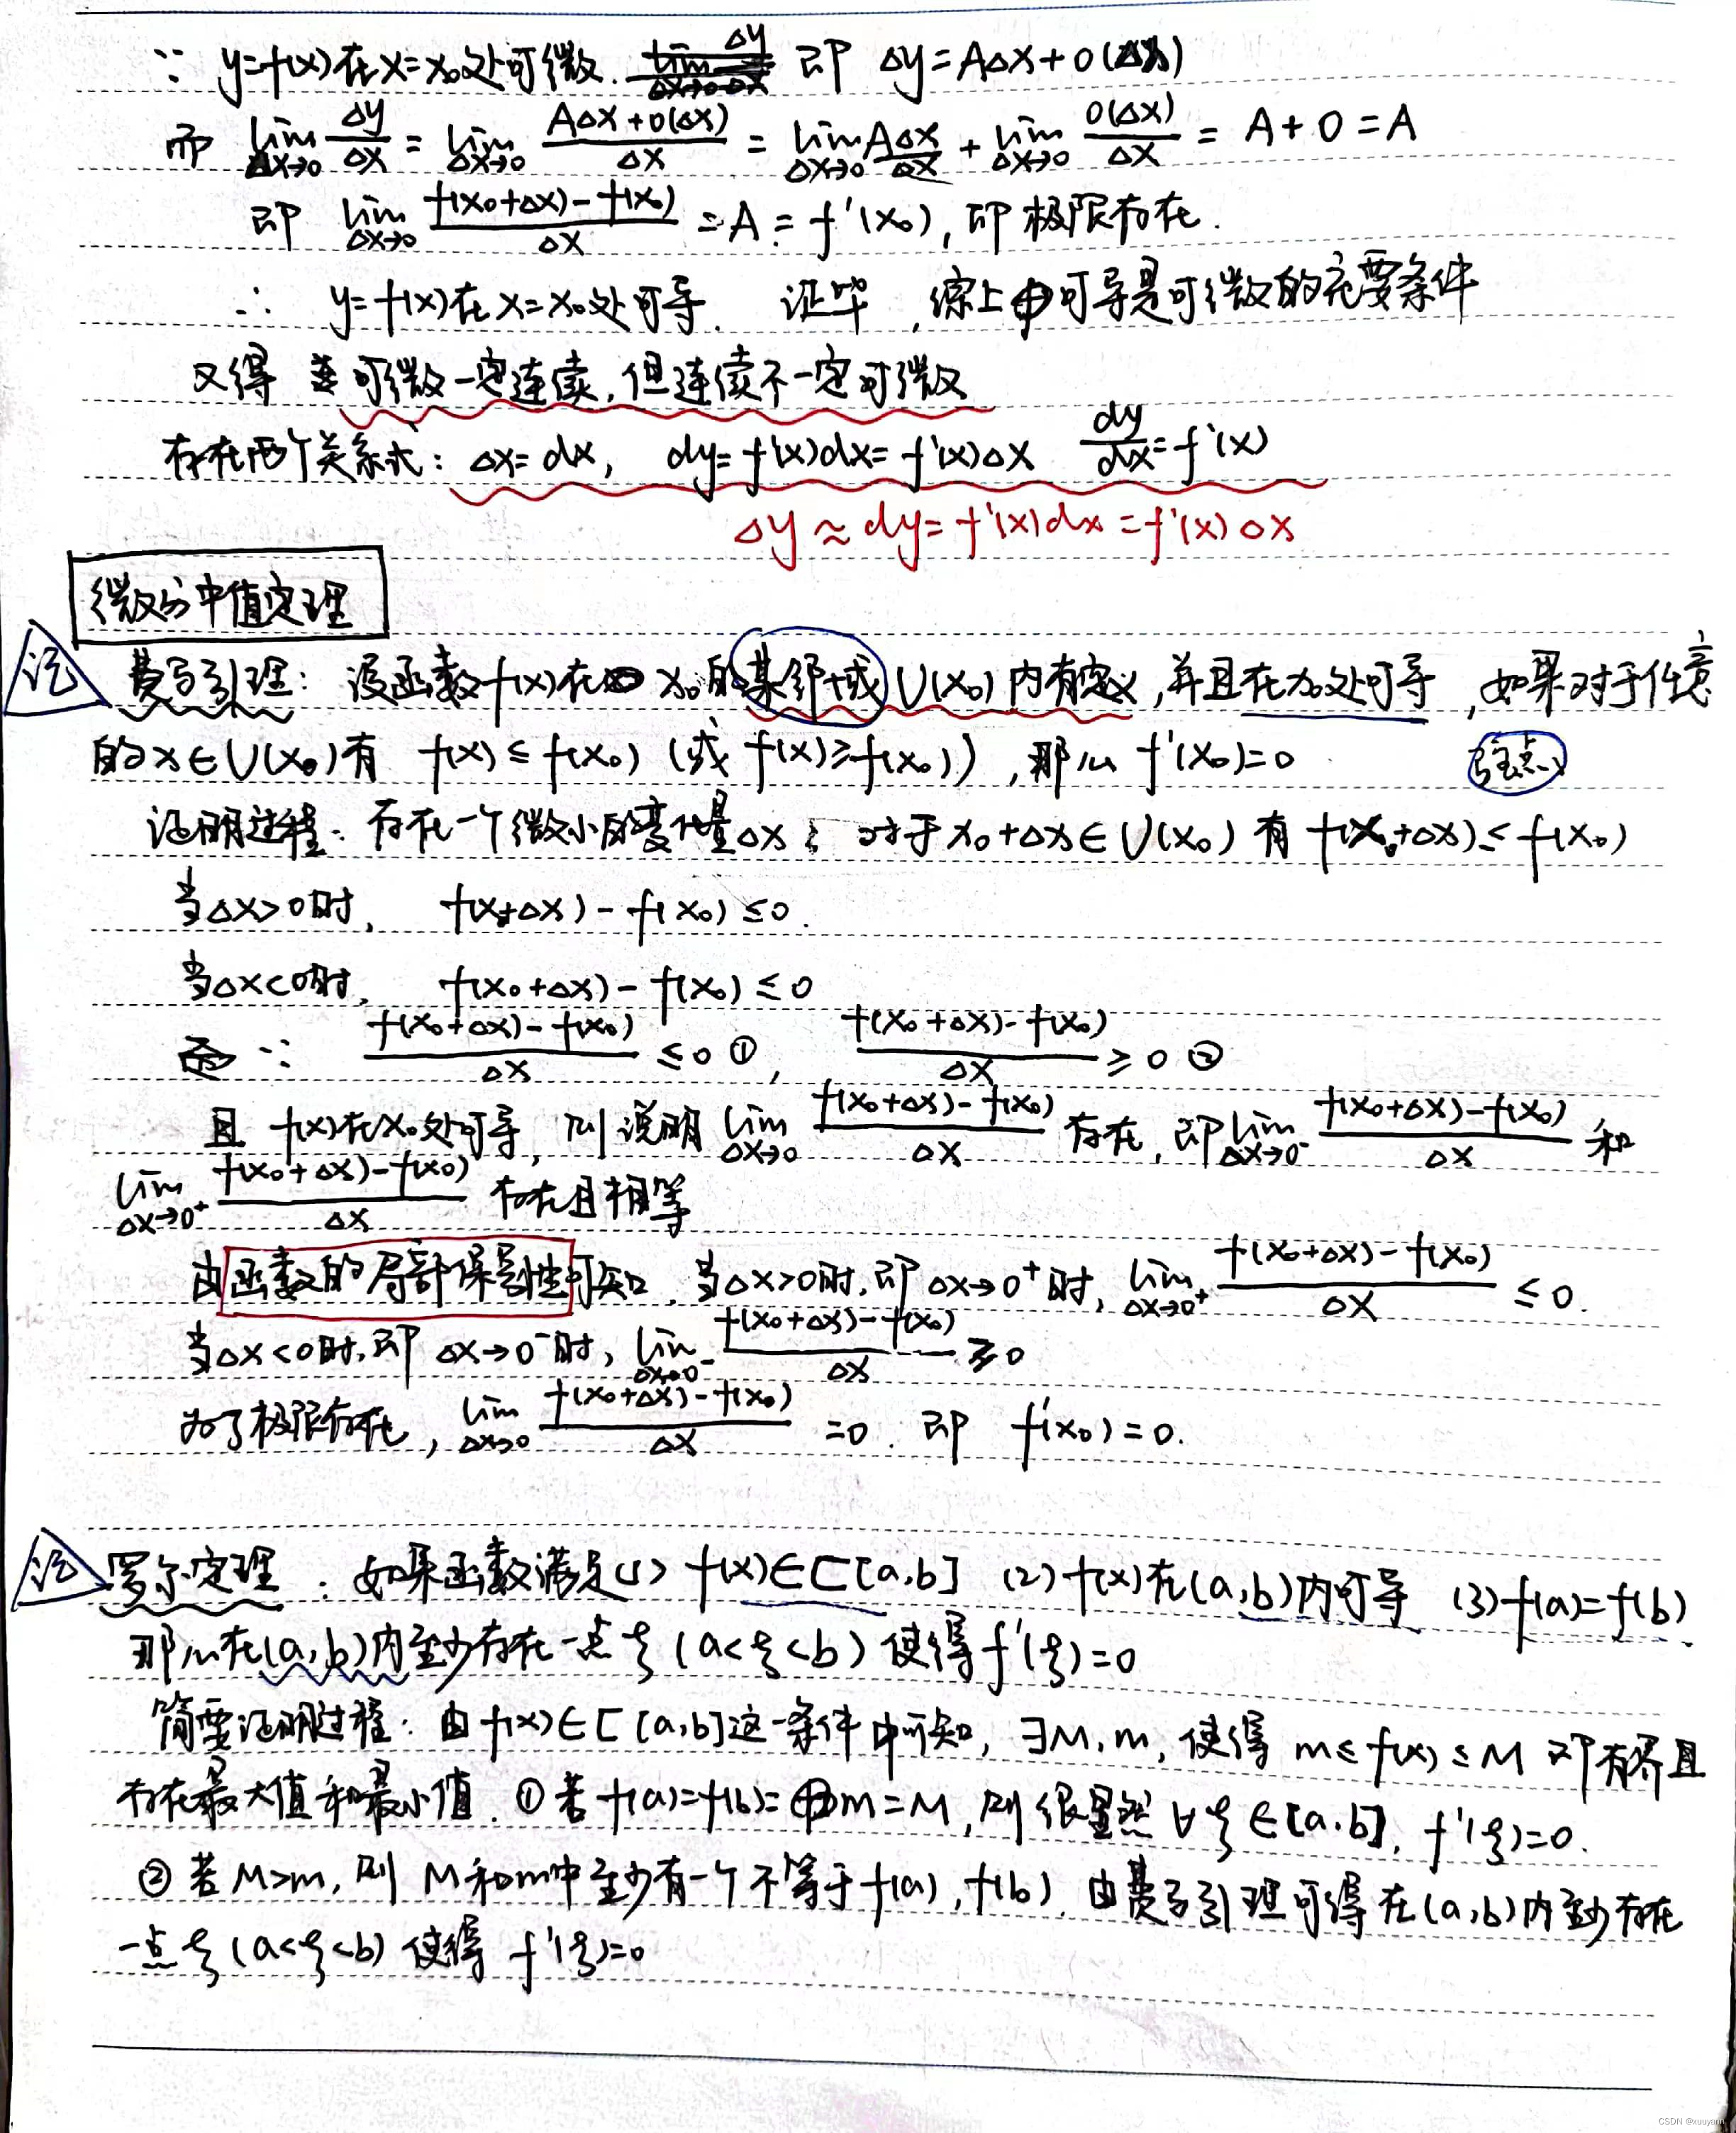 ∵ y=f(x)在x=x₀处可微. 即 Δy=AΔx+o(Δx)
而 lim(Δx→0) Δy/Δx = lim(Δx→0) (AΔx+o(Δx))/Δx = lim(Δx→0) AΔx/Δx + lim(Δx→0) o(Δx)/Δx = A+0=A
即 lim(Δx→0) (f(x₀+Δx)-f(x₀))/Δx =A= f'(x₀), 即极限存在.
∴ y=f(x)在x=x₀处可导. 证毕, 综上 可导是可微的充要条件
又得 可微一定连续, 但连续不一定可微
存在两个关系式: Δx=dx, dy=f'(x)dx=f'(x)Δx dy/dx=f'(x)
Δy≈dy=f'(x)dx=f'(x)Δx
微分中值定理
记 费马引理: 设函数f(x)在 x₀的某邻域U(x₀)内有定义, 并且在x₀处可导, 如果对于任意
的x∈U(x₀)有 f(x)≤f(x₀) (或 f(x)≥f(x₀)), 那么 f'(x₀)=0 驻点
证明过程: 存在一个微小的变化量Δx; 对于x₀+Δx∈U(x₀) 有 f(x₀+Δx)≤f(x₀)
当Δx>0时, f(x₀+Δx)-f(x₀)≤0.
当Δx<0时, f(x₀+Δx)-f(x₀)≤0
∵ (f(x₀+Δx)-f(x₀))/Δx ≤0 ①, (f(x₀+Δx)-f(x₀))/Δx ≥0 ②
且 f(x)在x₀处可导, 则说明 lim(Δx→0) (f(x₀+Δx)-f(x₀))/Δx 存在, 即 lim(Δx→0⁻) (f(x₀+Δx)-f(x₀))/Δx 和
lim(Δx→0⁺) (f(x₀+Δx)-f(x₀))/Δx 存在且相等
由函数的局部保号性可知, 当Δx>0时, 即Δx→0⁺时, lim(Δx→0⁺) (f(x₀+Δx)-f(x₀))/Δx ≤0.
当Δx<0时, 即 Δx→0⁻时, lim(Δx→0⁻) (f(x₀+Δx)-f(x₀))/Δx ≥0
为了极限存在, lim(Δx→0) (f(x₀+Δx)-f(x₀))/Δx =0. 即 f'(x₀)=0.
记 罗尔定理: 如果函数满足(1) f(x)∈C[a,b] (2) f(x)在(a,b)内可导 (3)f(a)=f(b)
那么在(a,b)内至少存在一点ξ(a<ξ<b) 使得f'(ξ)=0
简要证明过程: 由f(x)∈C[a,b]这一条件中可知, ∃M,m, 使得 m≤f(x)≤M 即有界且
存在最大值和最小值. ①若f(a)=f(b)= m=M, 则很显然 ∀ξ∈[a,b], f'(ξ)=0.
②若M>m, 则 M和m中至少有一个不等于f(a), f(b). 由费马引理可得在(a,b)内至少存在
一点ξ(a<ξ<b) 使得 f'(ξ)=0